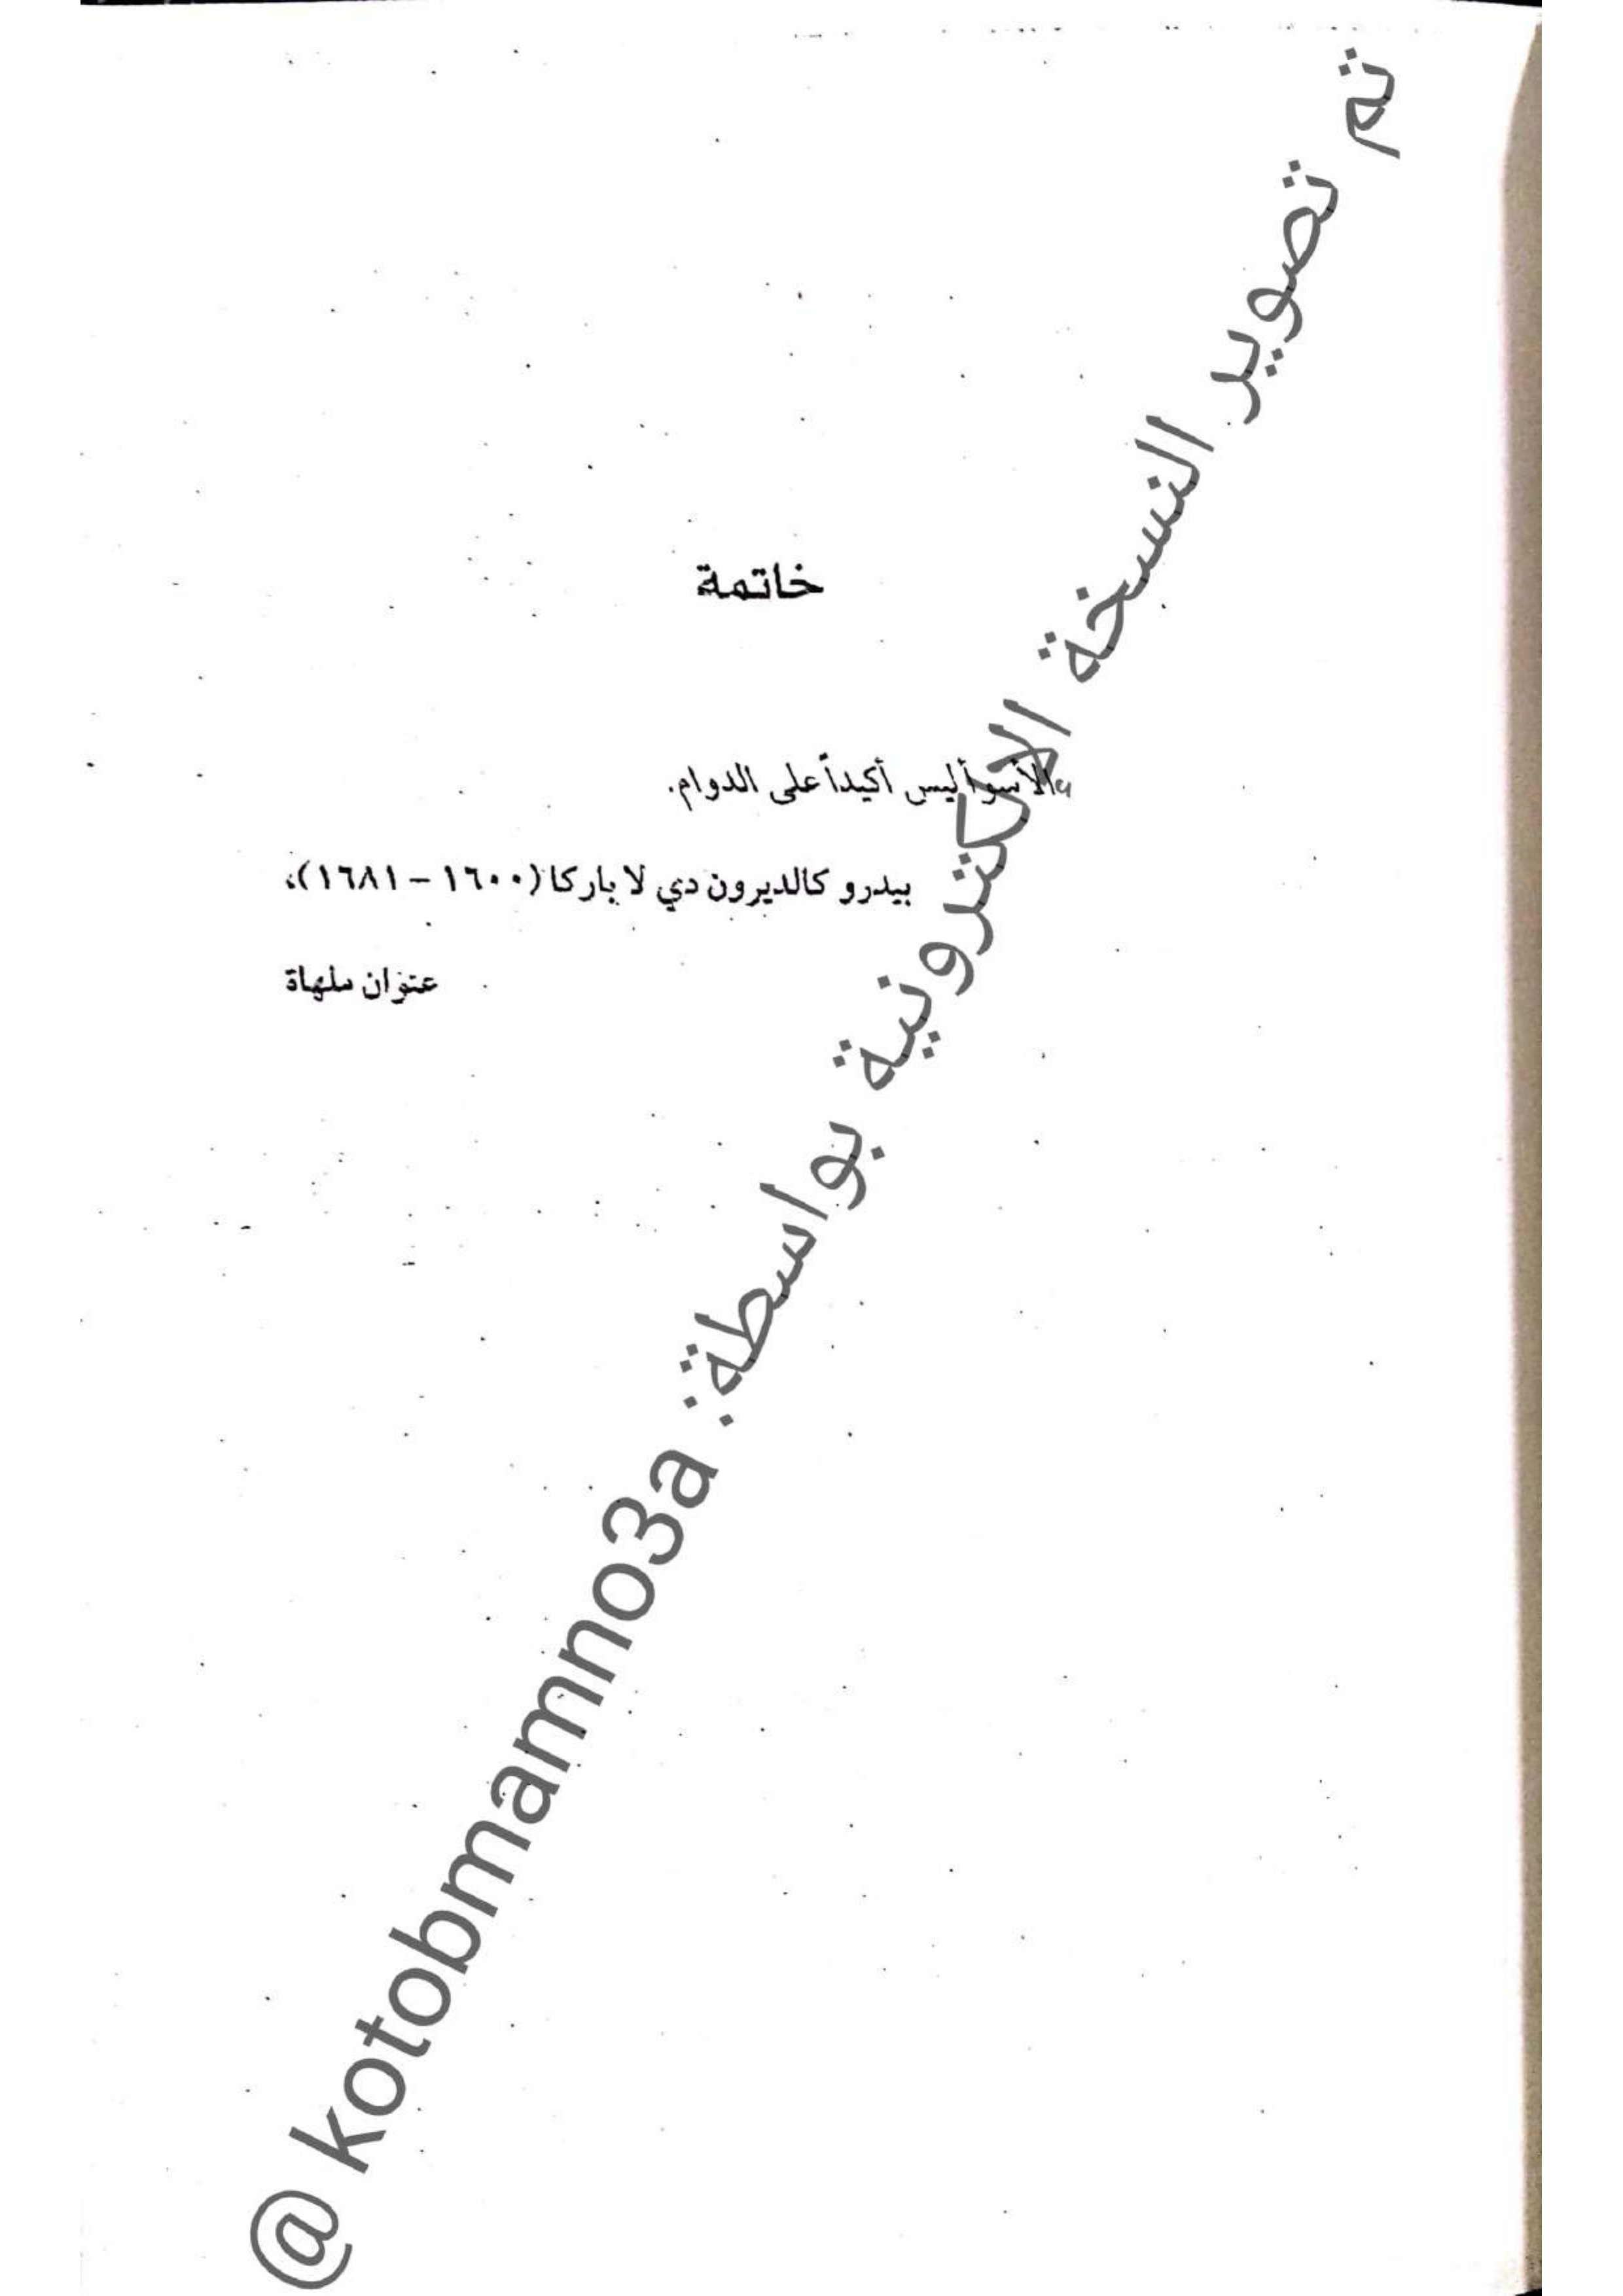 خاتمة
«الأسوأ ليس أكيداً على الدوام.
بيدرو كالديرون دي لا باركا (١٦٠٠ – ١٦٨١)،
عنوان ملهاة
تم تصوير النسخة الالكترونية بواسطة:
@ kotobmamno3a